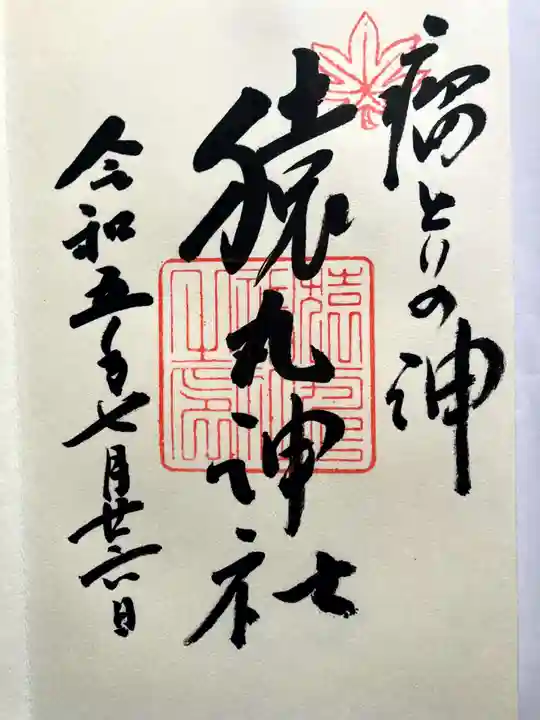 瘤とりの神
猿丸神社
令和五年七月廿六日